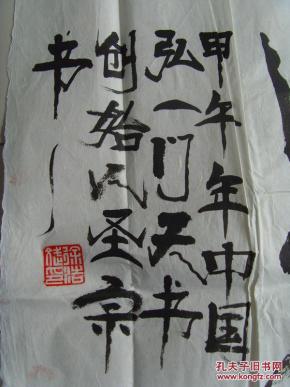 甲午年中国
弘一门天书
创始人圣宗
书
孔夫子旧书网